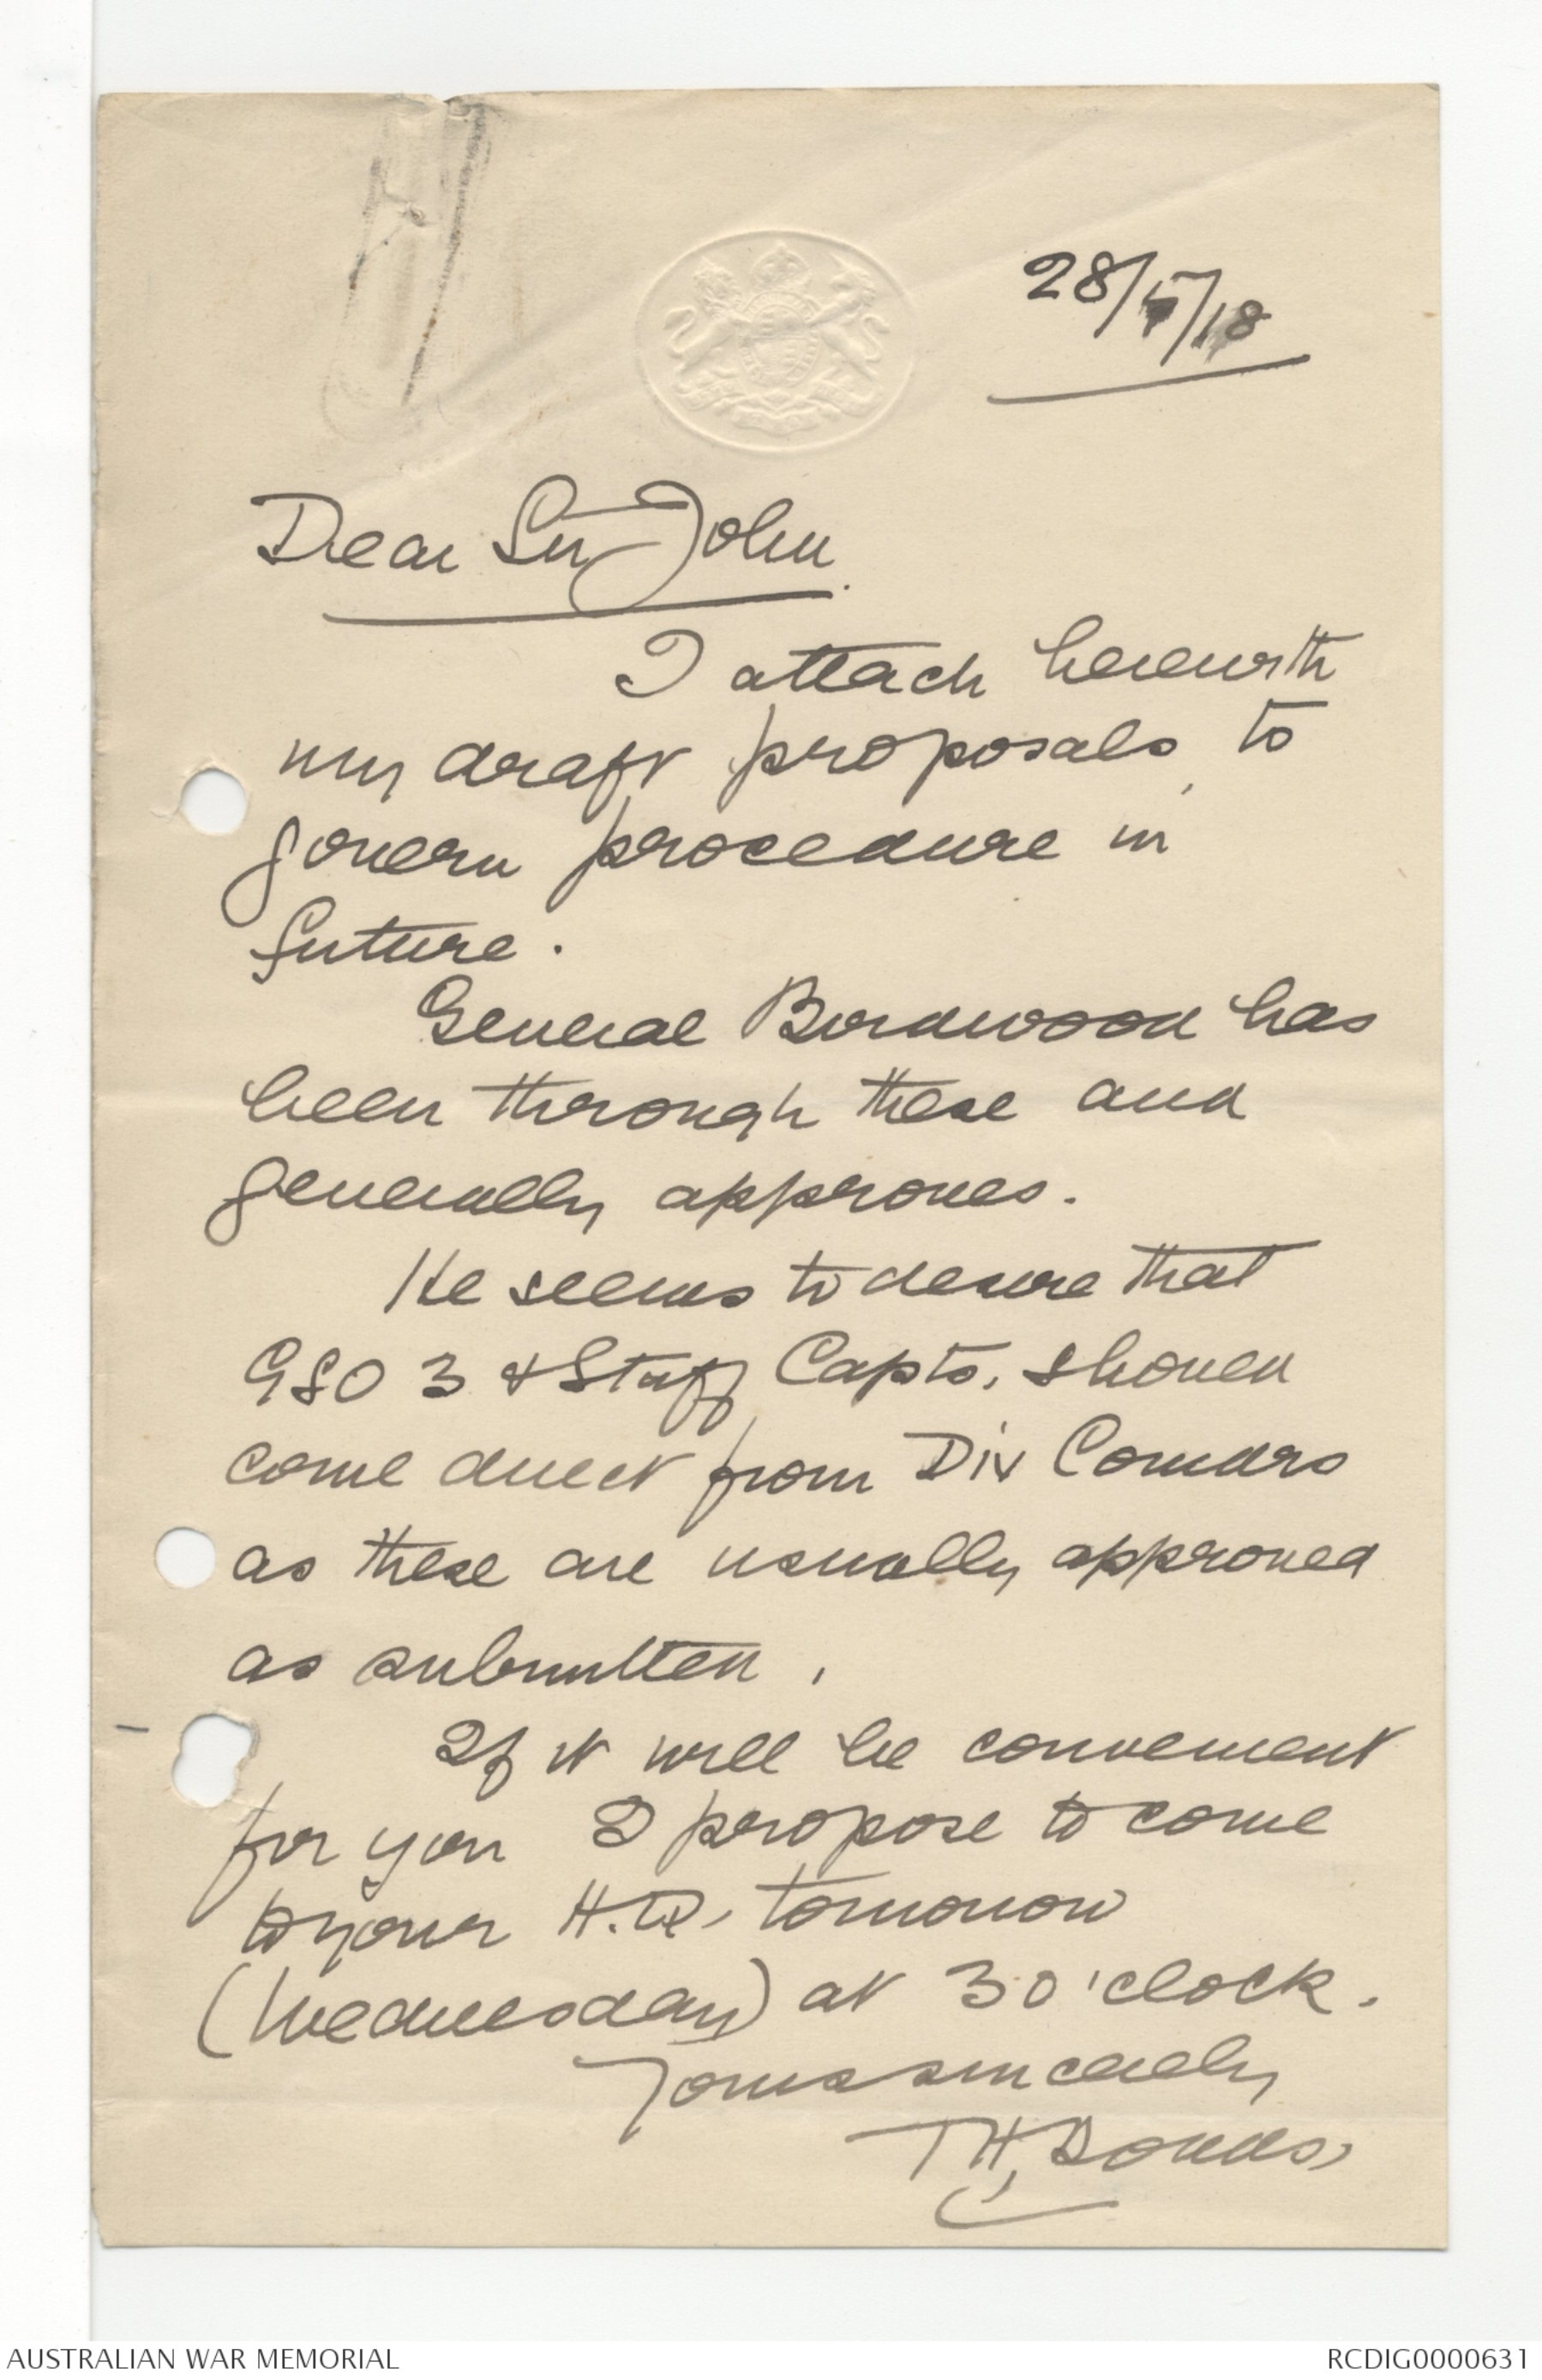 28/5/18
Dear Sir John.
I attach herewith
my draft proposals, to
govern procedure in
future.
General Birdwood has
been through these and
generally approves.
He seems to desire that
GSO 3 & Staff Capts. should
come direct from Div Comdrs
as these are usually approved
as submitted.
If it will be convenient
for you I propose to come
to your H.Q. tomorrow
(Wednesday) at 3 o'clock.
Yours sincerely
TH Dodds,
AUSTRALIAN WAR MEMORIAL
RCDIG0000631